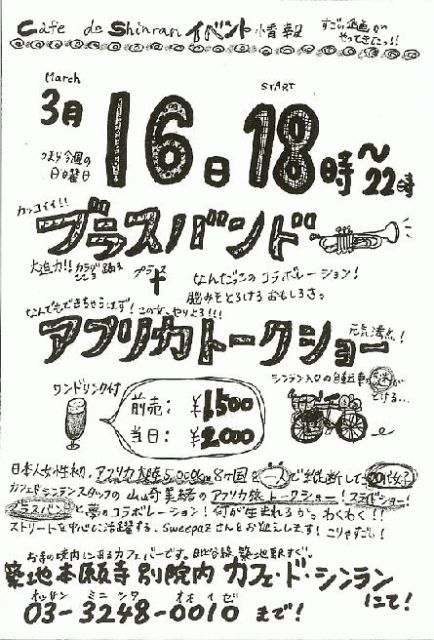 Cafe de Shinran イベント情報
すごい企画が
やってきたっ!!
March
START
3月16日18時〜22時
つまり今週の
日曜日
カッコイイ!!
ブラスバンド
大迫力!! カラダ踊る
こころ
プラス
+
なんだっこのコラボレーション!
脳みそとろけるおもしろさ。
なんでもできちゃうはず!この女、やりよる!!!
アフリカトークショー
元気満点!
ワンドリンク付
前売:¥1500
当日:¥2000
シンラン入口の自転車の謎が
とける...
日本人女性初、アフリカ大陸5,000km 8ヶ国を一人で縦断した20代女子
カフェドシンランスタッフの山崎美緒のアフリカ旅トークショー!
ブラスバンドと夢のコラボレーション!何が生まれるか。わくわく!!
ストリートを中心に活躍する、sweepazさんをお迎えします!
お寺の境内にあるカフェバーです。日比谷線 築地駅すぐ。
築地本願寺別院内 カフェ・ド・シンラン
にて!
03-3248-0010 まで!